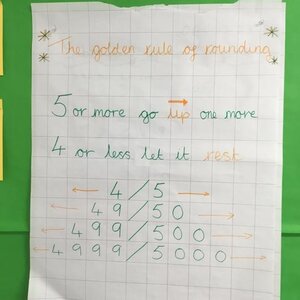 The golden rule of rounding
5 or more go up one more
4 or less let it rest
← 4/5 →
← 49/50 →
← 499/500 →
← 4999/5000 →